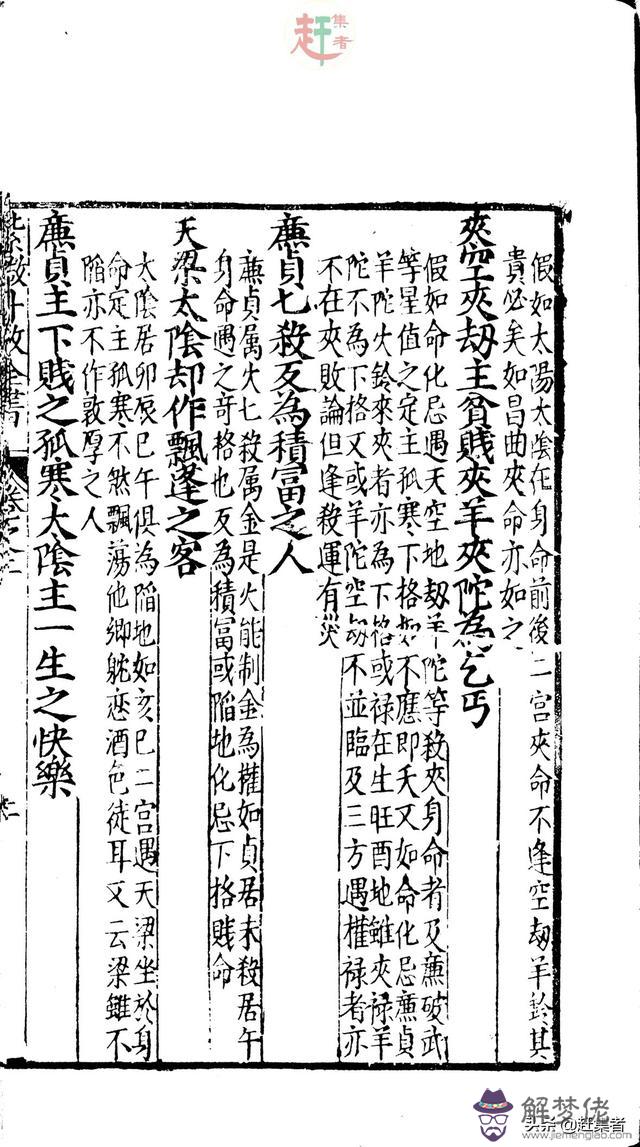 赶集者
假如太陽太陰在身命前後二宮夾命不逢空刼羊鈴其
貴必矣如昌曲夾命亦如之
夾空夾刼主貧賤夾羊夾陀為乞丐
假如命化忌遇天空地刼羊陀等殺夾身命者及廉破武
等星值之定主孤寒下格如不應即夭又如命化忌廉貞
羊陀火鈴來夾者亦為下格或禄在生旺酉地雖夾禄羊
陀不為下格又或羊陀空刼不並臨及三方遇權禄者亦
不在夾敗論但逢殺運有災
廉貞七殺反為積富之人
廉貞属火七殺属金是火能制金為權如貞居未殺居午
身命遇之奇格也反為積富或陷地化忌下格賤命
天梁太陰却作飄蓬之客
太陰居卯辰巳午俱為陷地如亥巳二宮遇天梁坐於身
命定主孤寒不然飄蕩他鄉躭恋酒色徒耳又云梁雖不
陷亦不作敦厚之人
廉貞主下賤之孤寒太陰主一生之快樂
全書
二
解梦佬
www.jiemenglao.com
头条@赶集者